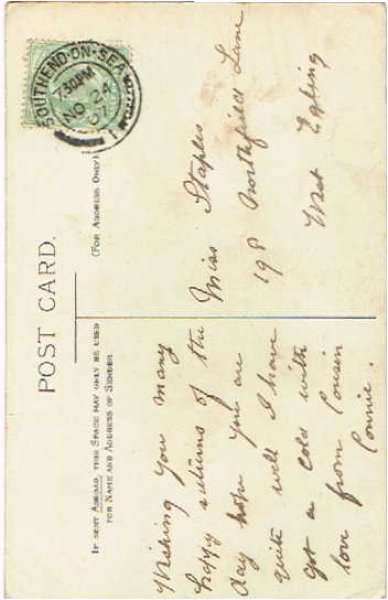 POST CARD.
IF SENT ABROAD, THIS SPACE MAY ONLY BE USED
FOR NAME AND ADDRESS OF SENDER
(FOR ADDRESS ONLY)
SOUTHEND-ON-SEA
7.30PM
NO 24
07
Wishing you many
happy returns of the
day hope you are
quite well I have
got a cold with
love from Cousin
Connie.
Miss Staples
198 Northfield Lane
West Ealing